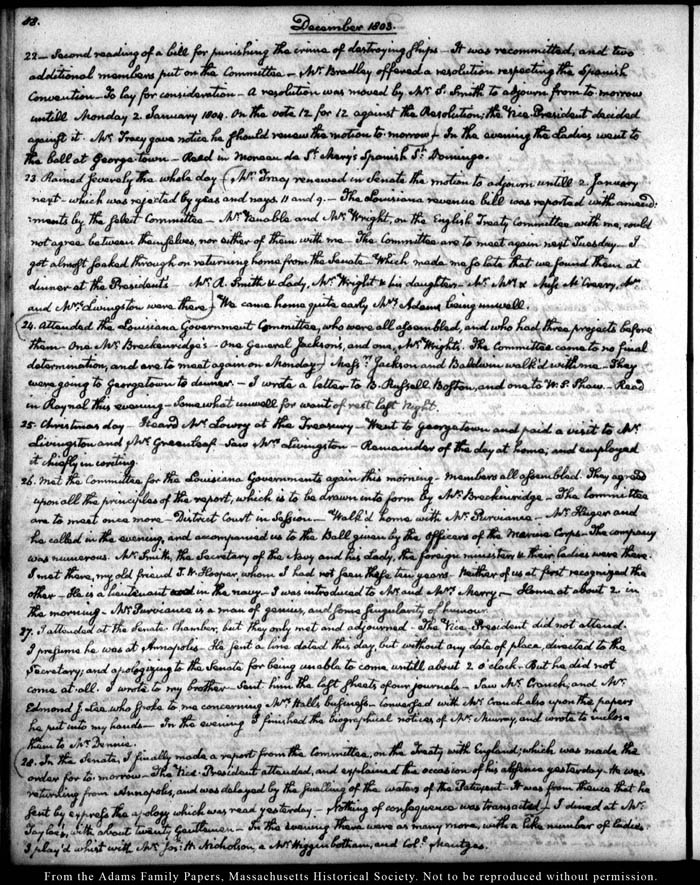 48.
December 1803.
22 — Second reading of a bill for punishing the crime of destroying ships — It was recommitted, and two
additional members put on the Committee — Mr. Bradley offered a resolution respecting the Spanish
Convention. To lay for consideration — A resolution was moved by Mr. S. Smith to adjourn from to-morrow
untill Monday 2 January 1804. On the vote 12 for 12 against the Resolution; the Vice-President decided
against it. Mr. Tracy gave notice he should renew the motion to-morrow — In the evening the Ladies went to
the ball at George-town — Read in Moreau de St. Mery's Spanish St. Domingo.
23. Rained severely the whole day (Mr. Tracy renewed in Senate the motion to adjourn untill 2 January
next — which was rejected by yeas and nays. 11 and 9. — The Louisiana revenue bill was reported with amend:
:ments by the select Committee — Mr. Venable and Mr. Wright, on the English Treaty Committee with me, could
not agree between themselves, nor either of them with me — The Committee are to meet again next Tuesday — I
got almost soaked through on returning home from the Senate — Which made me so late that we found them at
dinner at the President's — Mr. R. Smith & Lady, Mr. Wright & his daughters — Mr. Mrs. & Miss McCreery, Mr.
and Mrs. Livingston were there) We came home quite early, Mrs. Adams being unwell.
(24. Attended the Louisiana Government Committee, who were all assembled, and who had three projects before
them — One Mr. Breckenridge's — One General Jackson's, and one, Mr. Wright's. The Committee came to no final
determination, and are to meet again on Monday) Messrs. Jackson and Baldwin walk'd with me — They
were going to Georgetown to dinner. — I wrote a letter to B. Russell Boston, and one to W. S. Shaw — Read
in Raynal this evening — Somewhat unwell for want of rest last Night.
25. Christmas day — Heard Mr. Lowry at the Treasury — Went to Georgetown and paid a visit to Mr.
Livingston and Mr. Greenleaf — Saw Mrs. Livingston — Remainder of the day at home; and employed
it chiefly in writing.
26. Met the Committee for the Louisiana Governments again this morning — Members all assembled. They agreed
upon all the principles of the report, which is to be drawn into form by Mr. Breckenridge — The Committee
are to meet once more — District Court in Session — Walk'd home with Mr. Purviance — Mr. Huger and
he called in the evening, and accompanied us to the Ball given by the officers of the Marine Corps — The company
was numerous. Mr. Smith, the Secretary of the Navy and his Lady, the foreign ministers & their ladies were there.
I met there, my old friend J. W. Hooper whom I had not seen these ten years — Neither of us at first recognized the
other — He is a lieutenant in the navy — I was introduced to Mr. and Mrs. Merry — Home at about 2 in
the morning — Mr. Purviance is a man of genius, and some singularity of humour.
27. I attended at the Senate Chamber, but they only met and adjourned — The Vice-President did not attend.
I presume he was at Annapolis — He sent a line dated this day, but without any date of place, directed to the
Secretary; and apologizing to the Senate for being unable to come untill about 2 o'clock. But he did not
come at all. I wrote to my brother — Sent him the last sheets of our journals — Saw Mr. Cranch, and Mr.
Edmond J. Lee who spoke to me concerning Mr. Hall's business — Conversed with Mr. Cranch also upon the papers
he put into my hands — In the evening I finished the biographical notices of Mr. Murray, and wrote to inclose
them to Mr. Dennie.
(28. In the Senate, I finally made a report from the Committee, on the Treaty with England; which was made the
order for to-morrow — The Vice-President attended, and explained the occasion of his absence yesterday — He was
returning from Annapolis, and was delayed by the swelling of the waters of the Patuxent — It was from thence that he
sent by express the apology which was read yesterday — Nothing of consequence was transacted) — I dined at Mr.
Tayloe's, with about twenty Gentlemen — In the evening there were as many more, with a like number of ladies
I play'd whist with Mr. Jos: H. Nicholson, a Mr. Higginbotham, and Coll. Mentges.
From the Adams Family Papers, Massachusetts Historical Society. Not to be reproduced without permission.